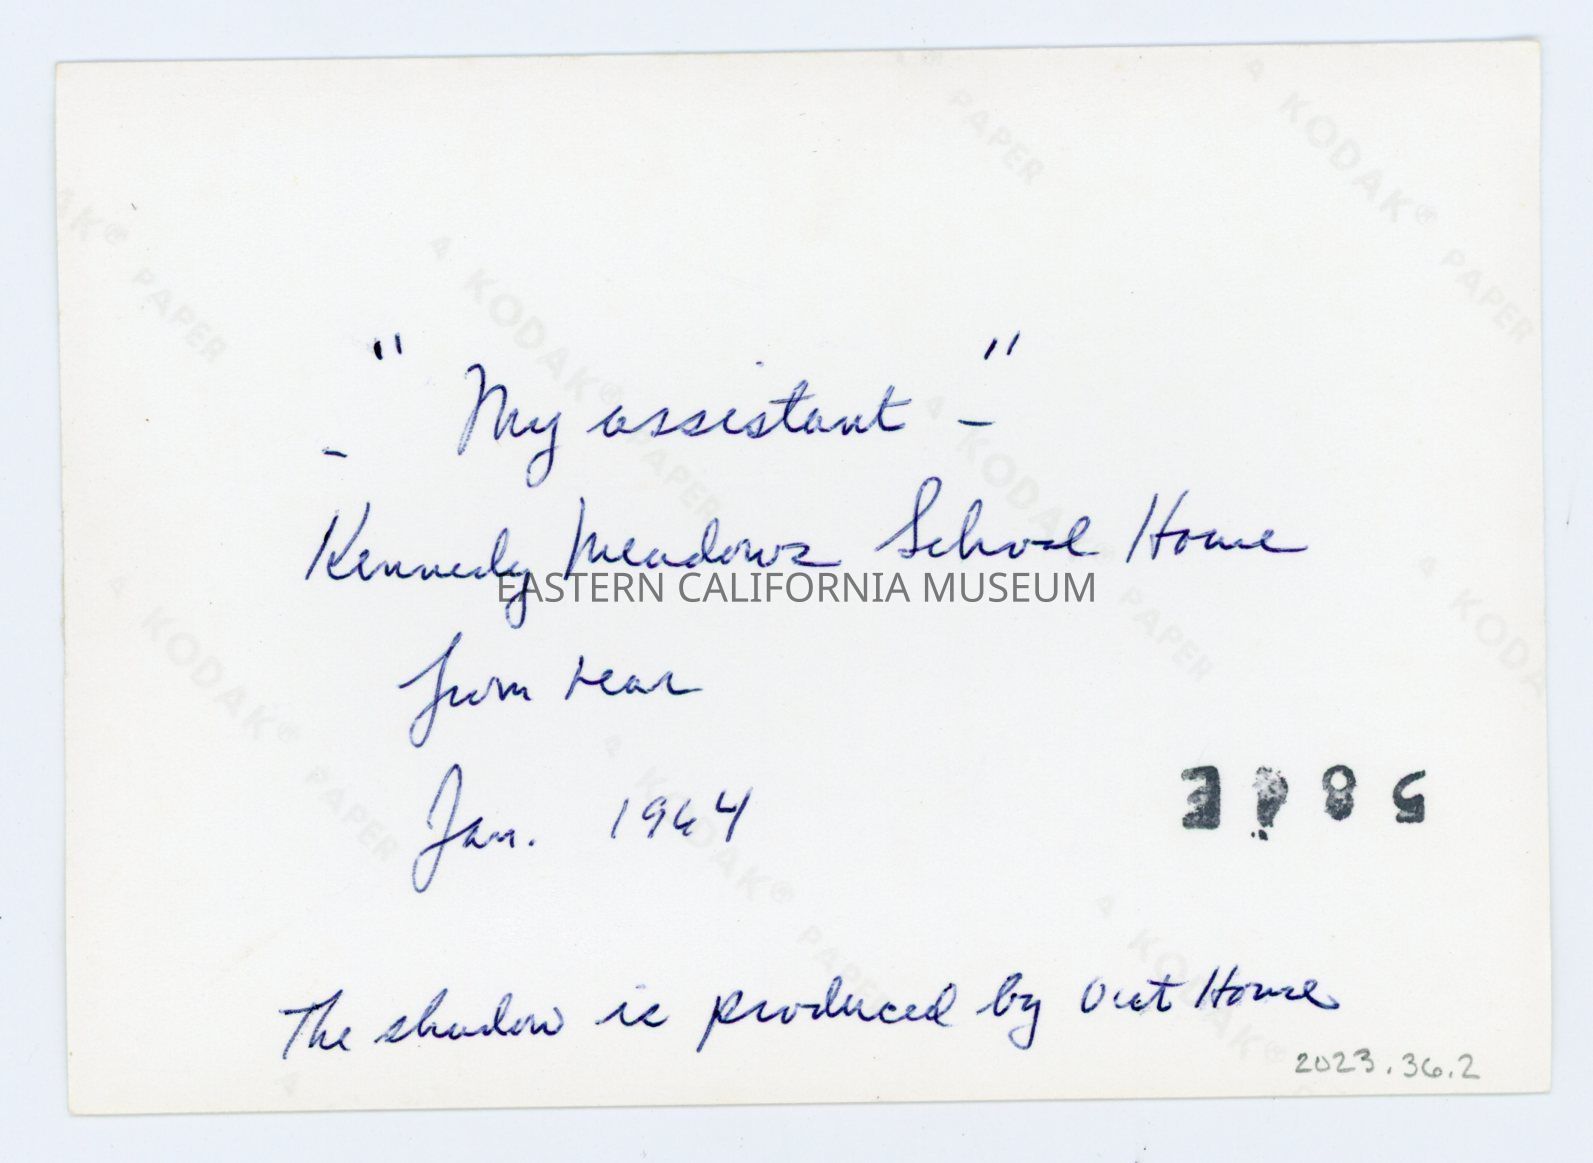 "My assistant" -
-
Kennedy Meadows School House
EASTERN CALIFORNIA MUSEUM
from rear
Jan. 1964
The shadow is produced by Out House
2023.36.2
KODAK® PAPER